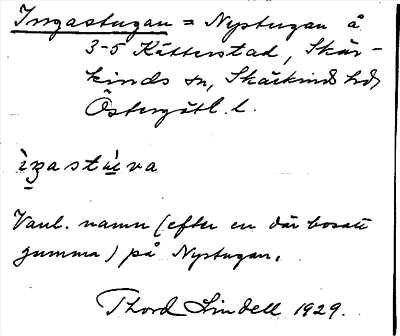 Ingastugan = Nystugan å
3-5 Kätterstad, Skär-
kinds sn, Skärkinds hd,
Östergötl. l.
ìŋastùːva
Vanl. namn (efter en där bosatt
gumma) på Nystugan.
Thord Lindell 1929.